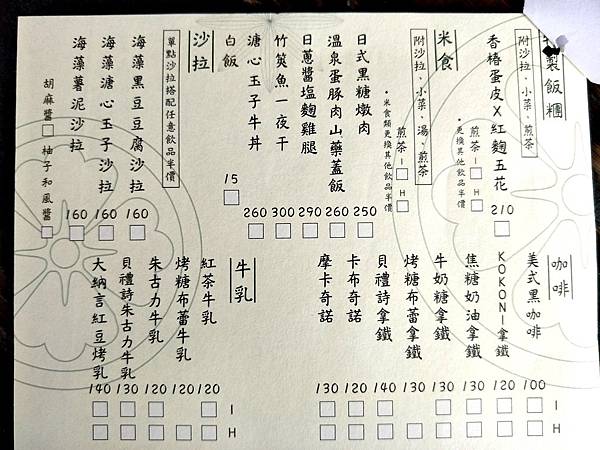 製飯糰
附沙拉、小菜、煎茶
香椿蛋皮X紅麴五花 210
煎茶 I H
•更換其他飲品半價
米食
附沙拉、小菜、湯、煎茶
煎茶 I H
•米食類更換其他飲品半價
日式黑糖燉肉 250
溫泉蛋豚肉山藥蓋飯 260
日蔥醬塩麴雞腿 290
竹筴魚一夜干 300
溏心玉子牛丼 260
白飯 15
沙拉
單點沙拉搭配任意飲品半價
海藻黑豆豆腐沙拉 160
海藻溏心玉子沙拉 160
海藻薯泥沙拉 160
胡麻醬 柚子和風醬
咖啡
美式黑咖啡 100
KOKONI拿鐵 120
焦糖奶油拿鐵 130
牛奶糖拿鐵 130
烤糖布蕾拿鐵 130
貝禮詩拿鐵 140
卡布奇諾 120
摩卡奇諾 130
I
H
牛乳
紅茶牛乳 120
烤糖布蕾牛乳 120
朱古力牛乳 120
貝禮詩朱古力牛乳 130
大納言紅豆烤乳 140
I
H